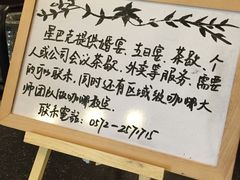 星巴克提供婚宴、生日宴、茶歇、个
人或公司会议茶歇、外卖等服务，需要
的可以联系，同时还有区域级咖啡大
师团队做咖啡教学
联系电话：0572-2571715